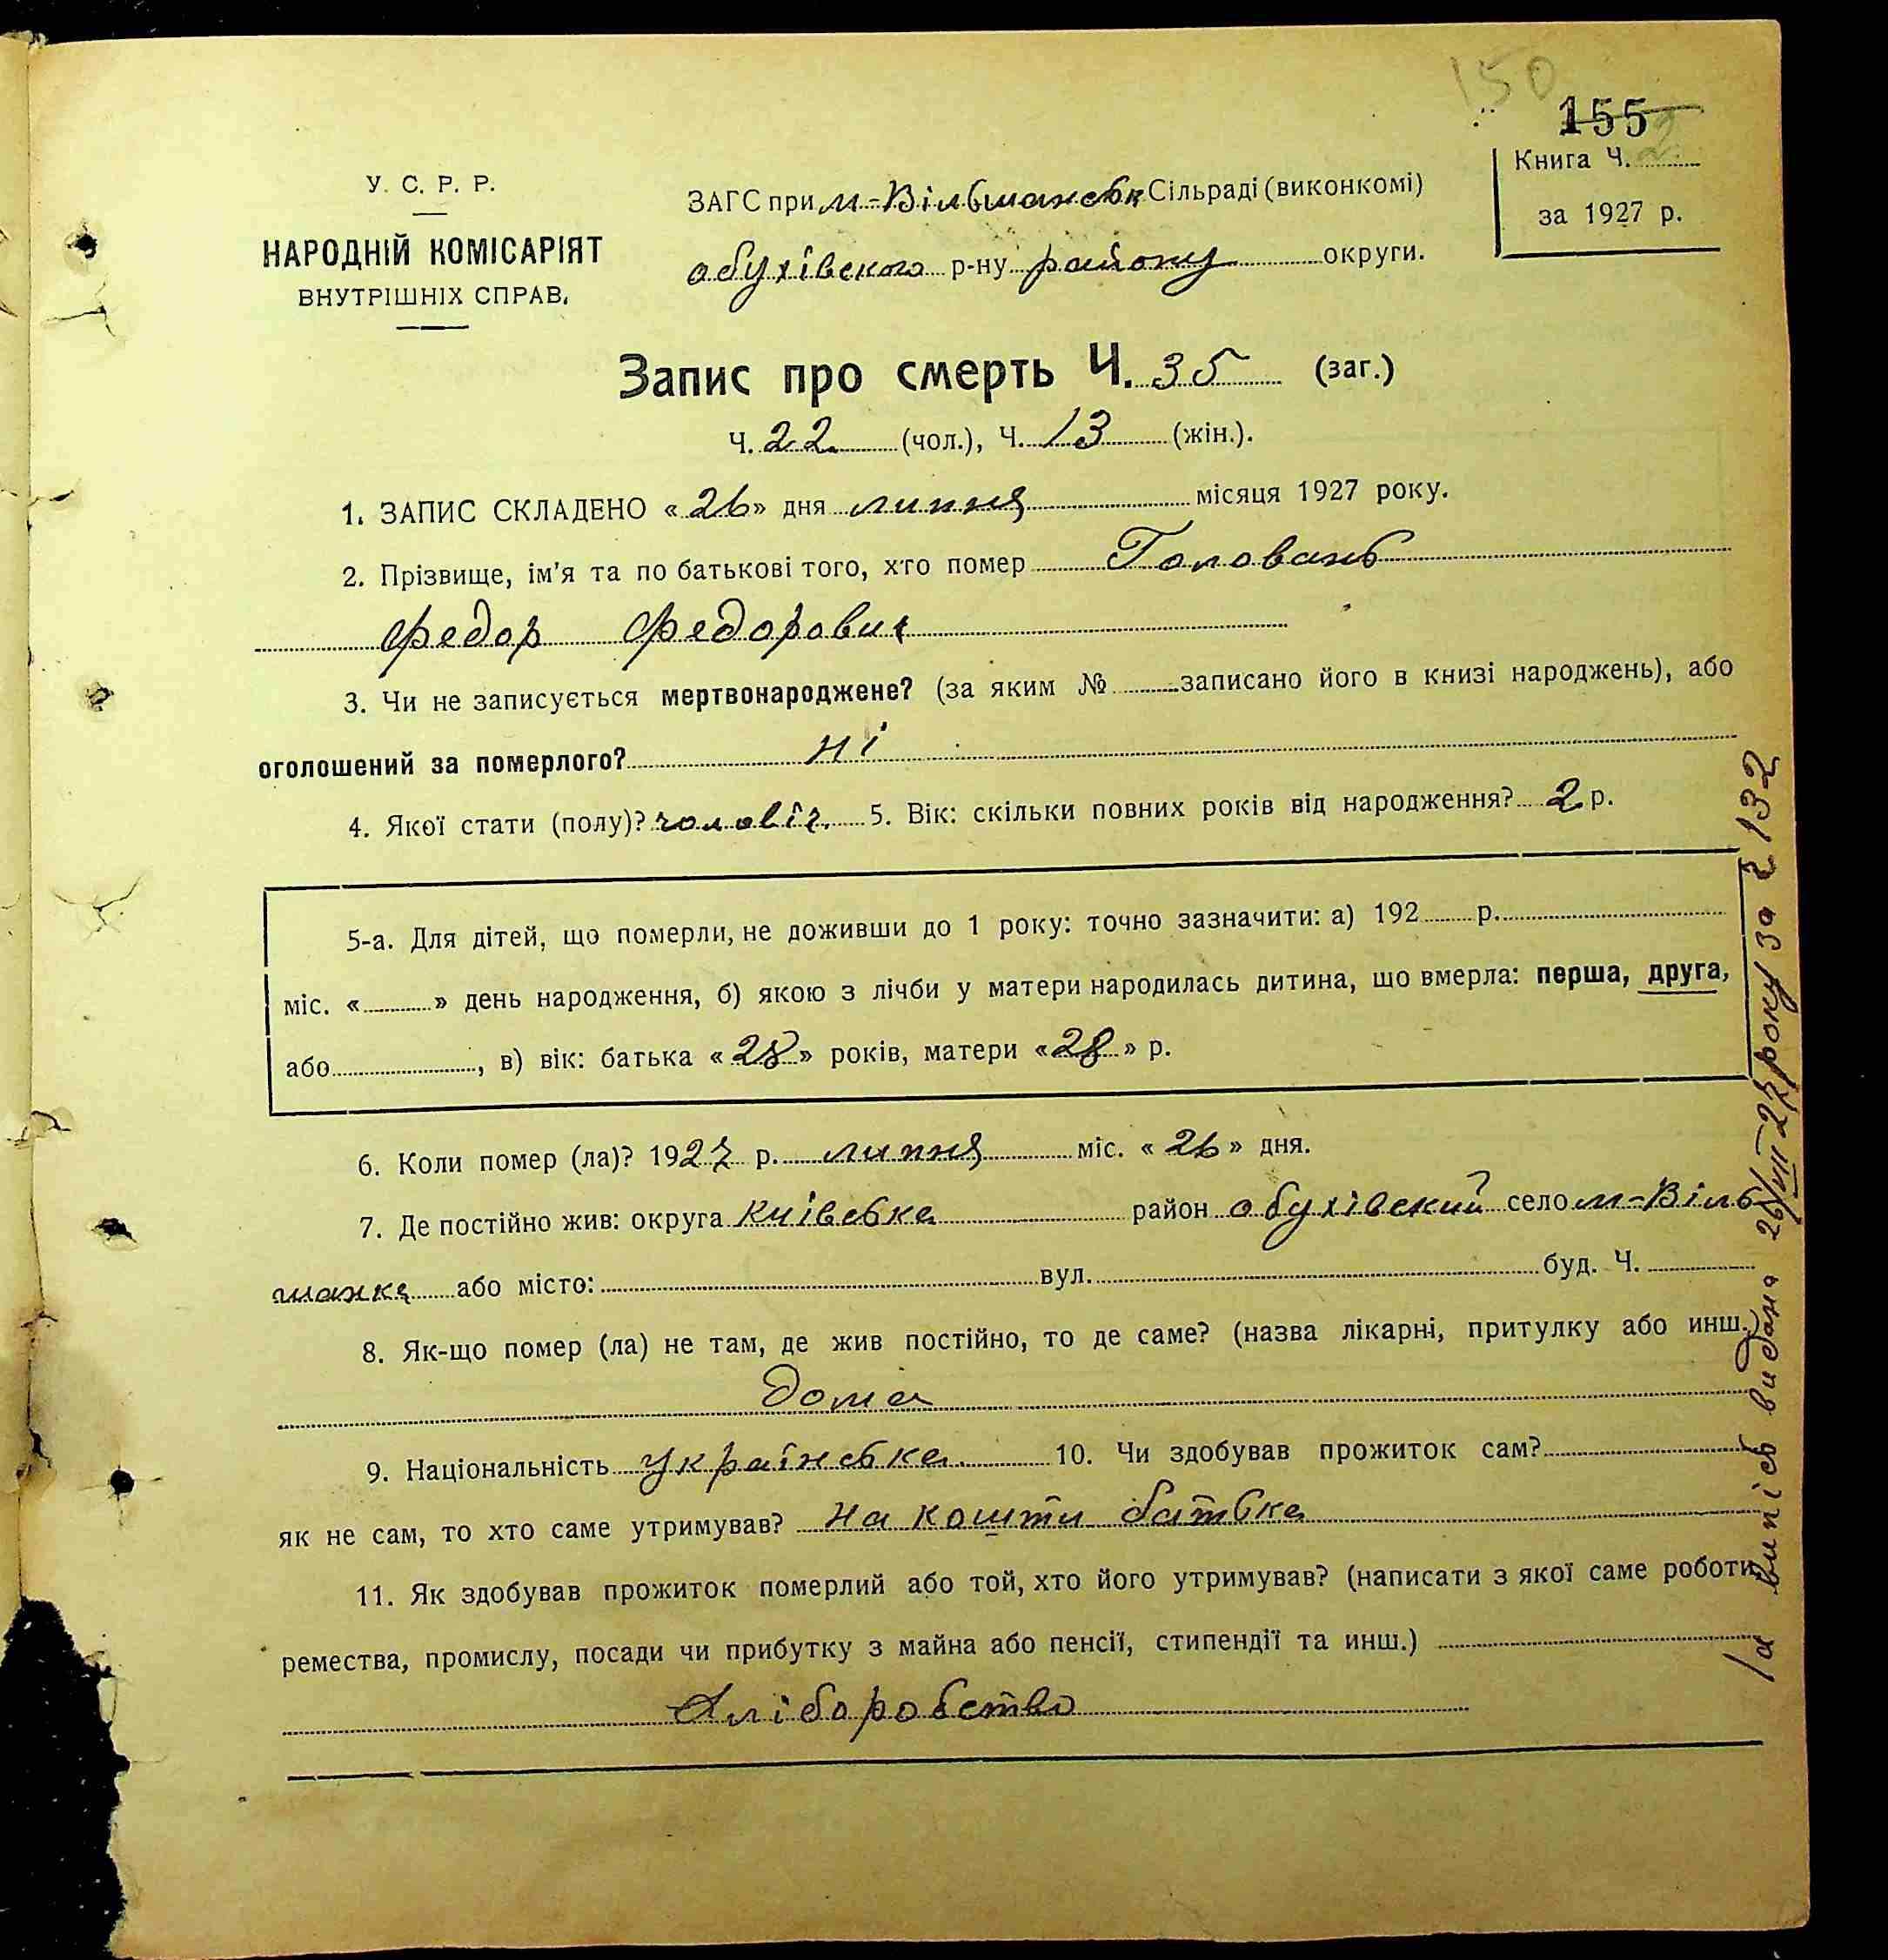 150
155
Книга Ч. 2
за 1927 р.
У. С. Р. Р.
НАРОДНІЙ КОМІСАРІЯТ
ВНУТРІШНІХ СПРАВ.
ЗАГС при м-Вільшанськ Сільраді (виконкомі)
обухівского р-ну району округи.
Запис про смерть Ч. 35 (заг.)
Ч. 22 (чол.), Ч. 13 (жін.).
1. ЗАПИС СКЛАДЕНО «26» дня липня місяця 1927 року.
2. Прізвище, ім'я та по батькові того, хто помер Головань
Федор Федорович
3. Чи не записується мертвонароджене? (за яким № записано його в книзі народжень), або
оголошений за померлого? ні
4. Якої стати (полу)? чоловіч. 5. Вік: скільки повних років від народження? 2 р.
5-а. Для дітей, що померли, не доживши до 1 року: точно зазначити: а) 192 р.
міс. « » день народження, б) якою з лічби у матери народилась дитина, що вмерла: перша, друга,
або , в) вік: батька «28» років, матери «28» р.
6. Коли помер (ла)? 1927 р. липня міс. «26» дня.
7. Де постійно жив: округа Київська район обухівский село м-Віль
шанка або місто: вул. буд. Ч.
8. Як-що помер (ла) не там, де жив постійно, то де саме? (назва лікарні, притулку або инш.)
дома
9. Національність українська. 10. Чи здобував прожиток сам?
як не сам, то хто саме утримував? на кошти батька
11. Як здобував прожиток померлий або той, хто його утримував? (написати з якої саме роботи
ремества, промислу, посади чи прибутку з майна або пенсії, стипендії та инш.)
Хліборобство
1а випісь видана 26/VII 27 року за 132